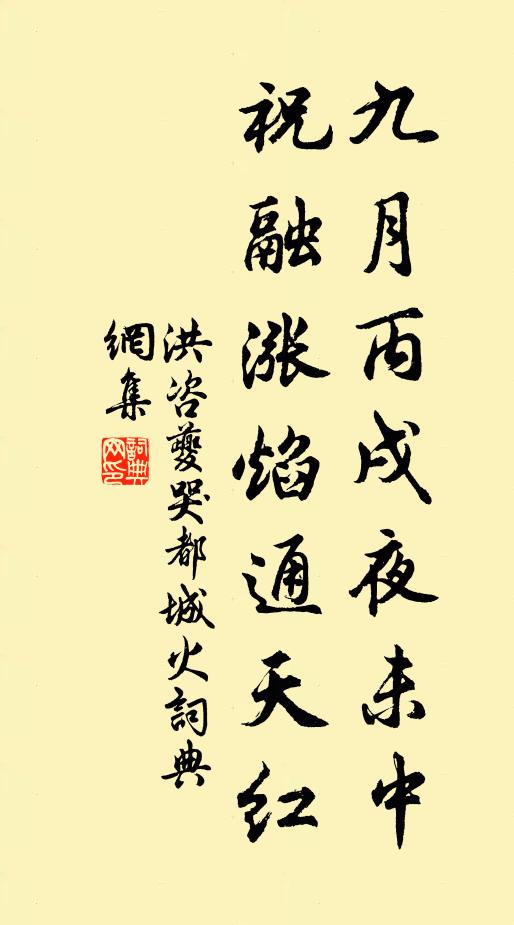 九月丙戌夜未中
祝融漲焰通天紅
洪咨夔哭都城火詞典
網集
詞典網印